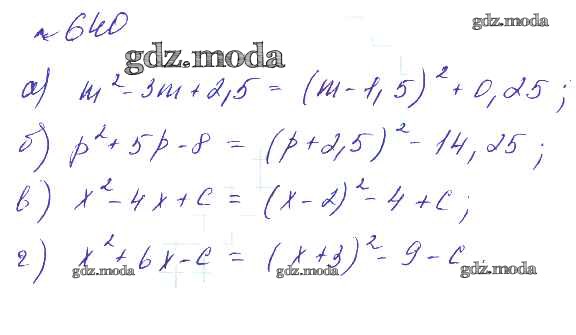 № 640
gdz.moda
gdz.moda
а) m² - 3m + 2,5 = (m - 1,5)² + 0,25;
б) p² + 5p - 8 = (p + 2,5)² - 14,25;
в) x² - 4x + c = (x - 2)² - 4 + c;
г) x² + 6x - c = (x + 3)² - 9 - c
gdz.moda gdz.moda gdz.moda